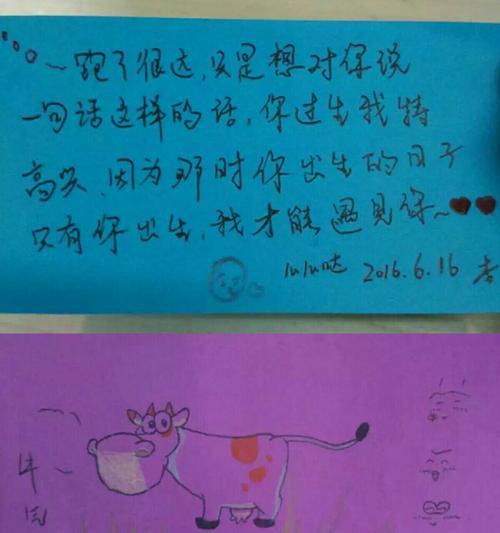 ~跑了很远,只是想对你说
一句话这样的话,你过生我特
高兴,因为那时你出生的日子
只有你出生,我才能遇見你~
lululu哒 2016.6.16
牛